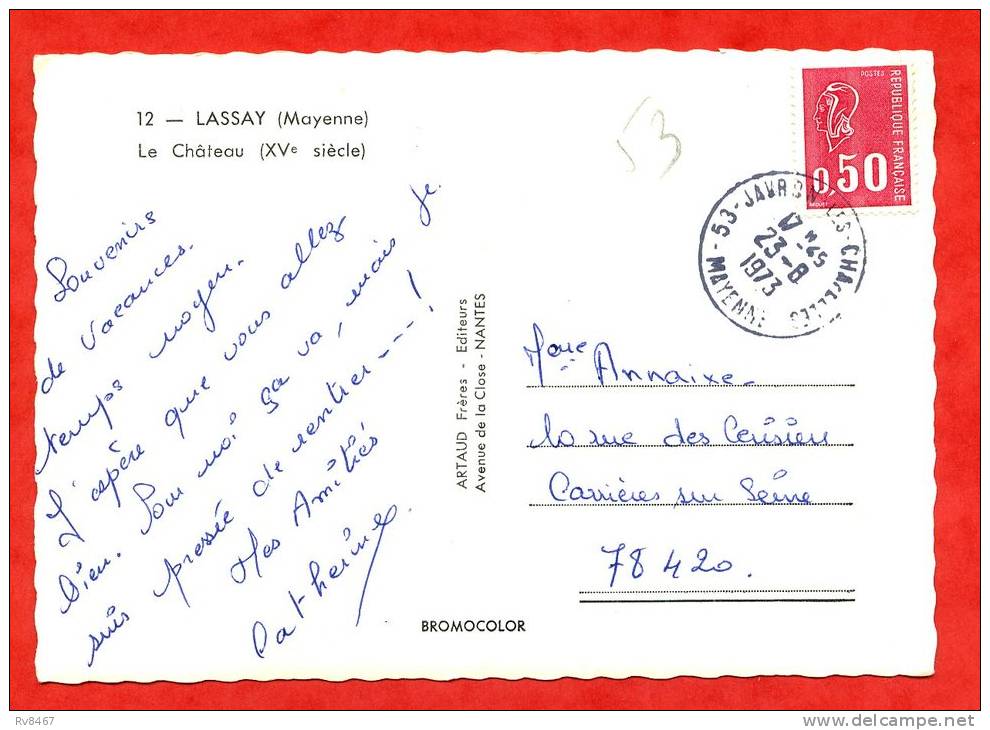 12 — LASSAY (Mayenne)
Le Château (XVe siècle)
53
POSTES
REPUBLIQUE FRANÇAISE
0,50
BEQUET
53 - JAVRON-LES-CHAPELLES
17 H 45
23-8
1973
MAYENNE
Souvenirs
de Vacances.
temps moyen.
J'espère que vous allez
bien. Pour moi ça va, mais je
suis pressée de rentrer---!
Mes Amitiés
Catherine.
ARTAUD Frères - Editeurs
Avenue de la Close - NANTES
Mme Annaixe.
10 rue des Cerisiers
Carrières sur Seine
78420.
BROMOCOLOR
Rv8467
www.delcampe.net